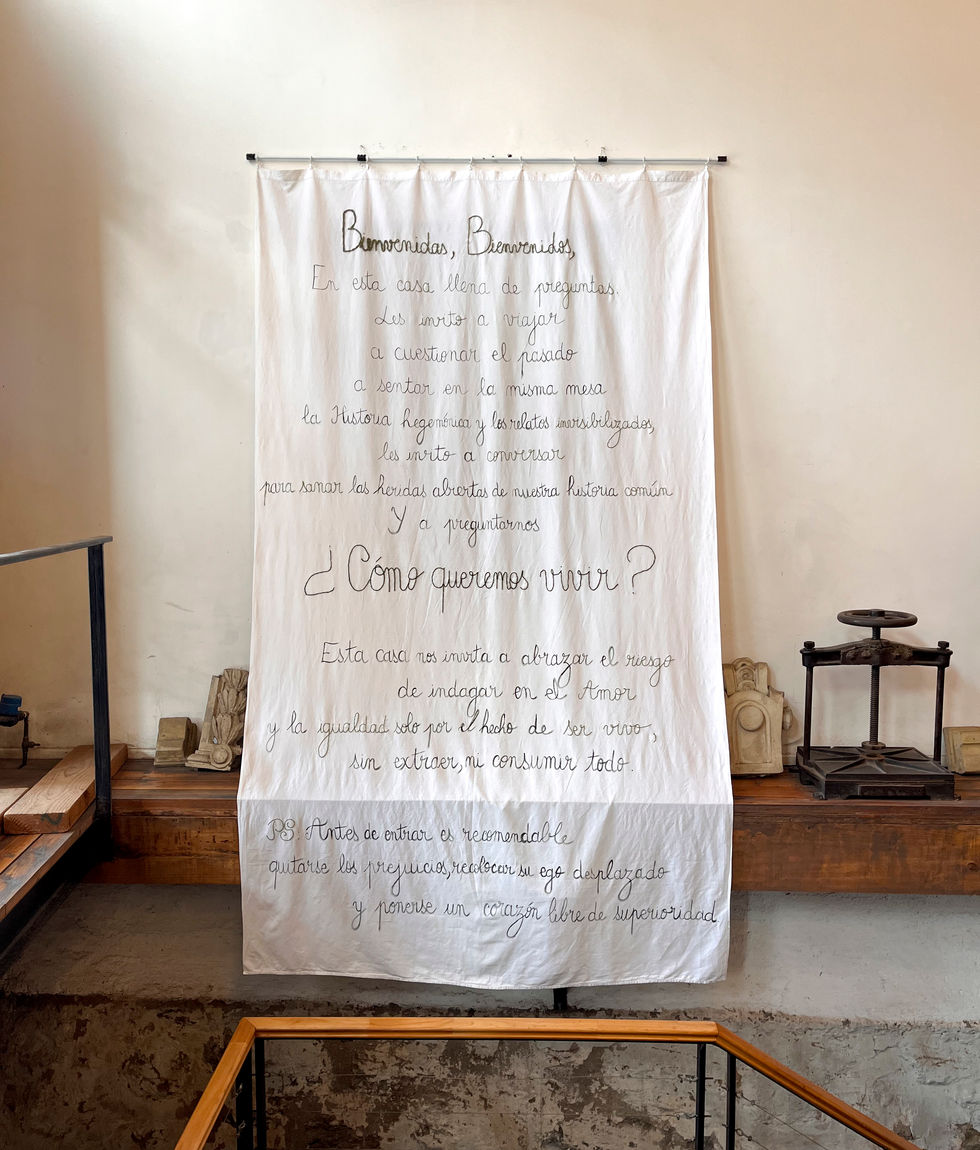 Bienvenidas, Bienvenidos,
En esta casa llena de preguntas.
Les invito a viajar
a cuestionar el pasado
a sentar en la misma mesa
la Historia hegemónica y los relatos invisibilizados,
les invito a conversar
para sanar las heridas abiertas de nuestra historia común
Y a preguntarnos
¿Cómo queremos vivir?
Esta casa nos invita a abrazar el riesgo
de indagar en el Amor
y la igualdad solo por el hecho de ser vivo,
sin extraer, ni consumir todo.
PS: Antes de entrar es recomendable
quitarse los prejuicios, recolocar su ego desplazado
y ponerse un corazón libre de superioridad